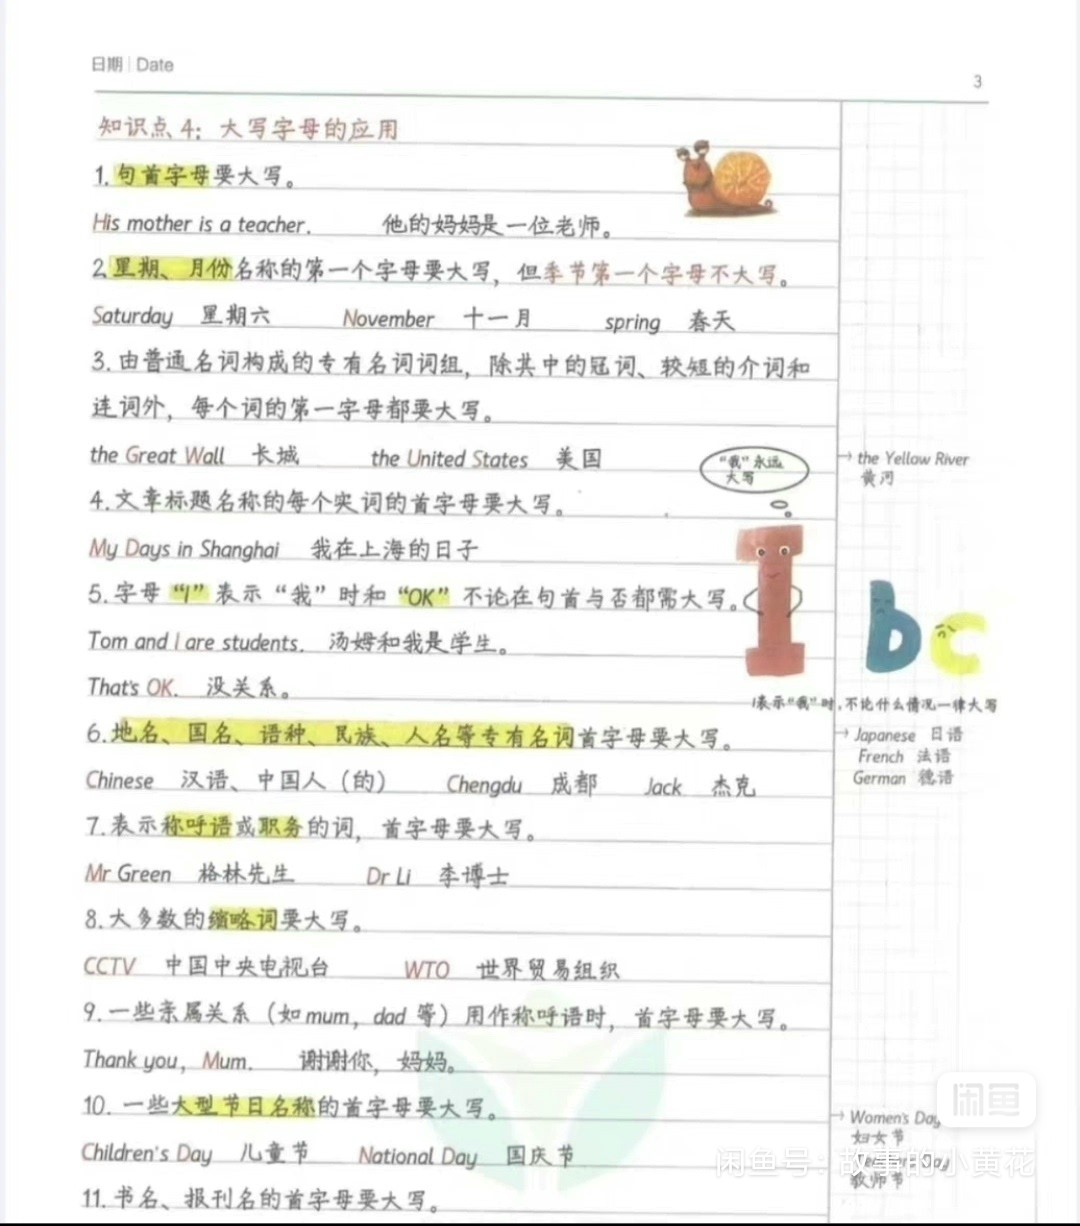 日期 | Date
3
知识点 4：大写字母的应用
1.句首字母要大写。
His mother is a teacher. 他的妈妈是一位老师。
2.星期、月份名称的第一个字母要大写，但季节第一个字母不大写。
Saturday 星期六 November 十一月 spring 春天
3.由普通名词构成的专有名词词组，除其中的冠词、较短的介词和
连词外，每个词的第一字母都要大写。
the Great Wall 长城 the United States 美国
“我”永远
大写
→ the Yellow River
黄河
4.文章标题名称的每个实词的首字母要大写。
My Days in Shanghai 我在上海的日子
5.字母“I”表示“我”时和“OK”不论在句首与否都需大写。
I b c
Tom and I are students. 汤姆和我是学生。
That's OK. 没关系。
I表示“我”时，不论什么情况一律大写
6.地名、国名、语种、民族、人名等专有名词首字母要大写。
→ Japanese 日语
French 法语
German 德语
Chinese 汉语、中国人（的） Chengdu 成都 Jack 杰克
7.表示称呼语或职务的词，首字母要大写。
Mr Green 格林先生 Dr Li 李博士
8.大多数的缩略词要大写。
CCTV 中国中央电视台 WTO 世界贸易组织
9.一些亲属关系（如mum，dad 等）用作称呼语时，首字母要大写。
Thank you，Mum. 谢谢你，妈妈。
10. 一些大型节日名称的首字母要大写。
→ Women's Day
妇女节
Day
教师节
Children's Day 儿童节 National Day 国庆节
11.书名、报刊名的首字母要大写。
闲鱼
闲鱼号：故事的小黄花